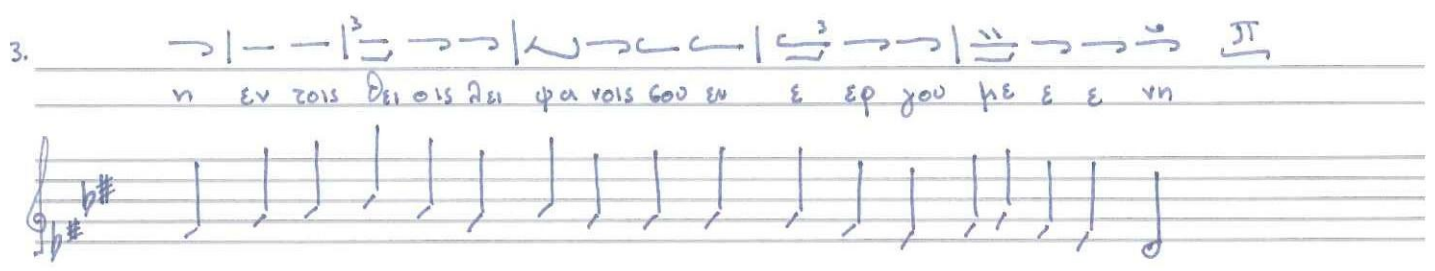 3. Π
η εν τοις θει οις λει ψα νοις σου εν ε ερ γου με ε ε νη